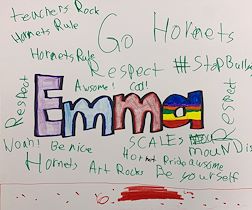 teachers Rock
Hornets Rule
Go Hornets
Hornets Rule
Respect
#StopBull
Respect
Awsome! Cool!
Respect
Emma
Woah! Be nice
SCALES
Mound is
Hornet Pride awssome
Hornets Art Rocks Be yourself